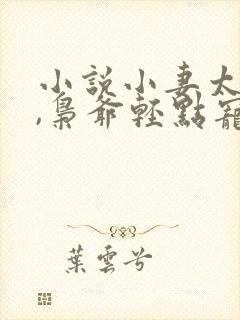 小說小妻太
,梟爺輕點寵
葉雲兮